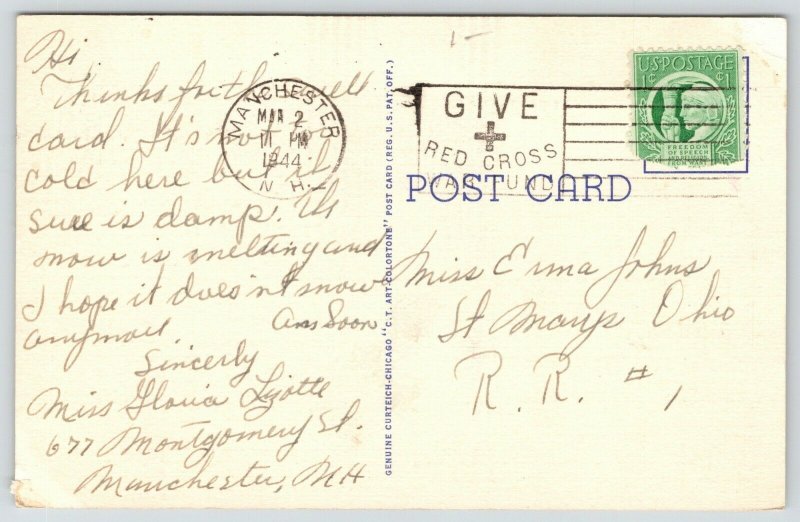 Hi
Thinks for the swell
card. It's not so
cold here but it
sure is damp. The
snow is melting and
I hope it doesn't snow
anymore.
Ans Soon
Sincerly
Miss Gloria Lizotte
677 Montgomery St.
Manchester, NH
MANCHESTER
MAR 2
11 PM
1944
N.H.
GENUINE CURTEICH-CHICAGO "C.T. ART-COLORTONE" POST CARD (REG. U.S. PAT. OFF.)
1-
GIVE
RED CROSS
WAR FUND
POST CARD
U.S. POSTAGE
1¢ ¢1
FREEDOM
OF SPEECH
AND RELIGION,
FROM WANT
Miss Erma Johns
St Marys Ohio
R. R. #1